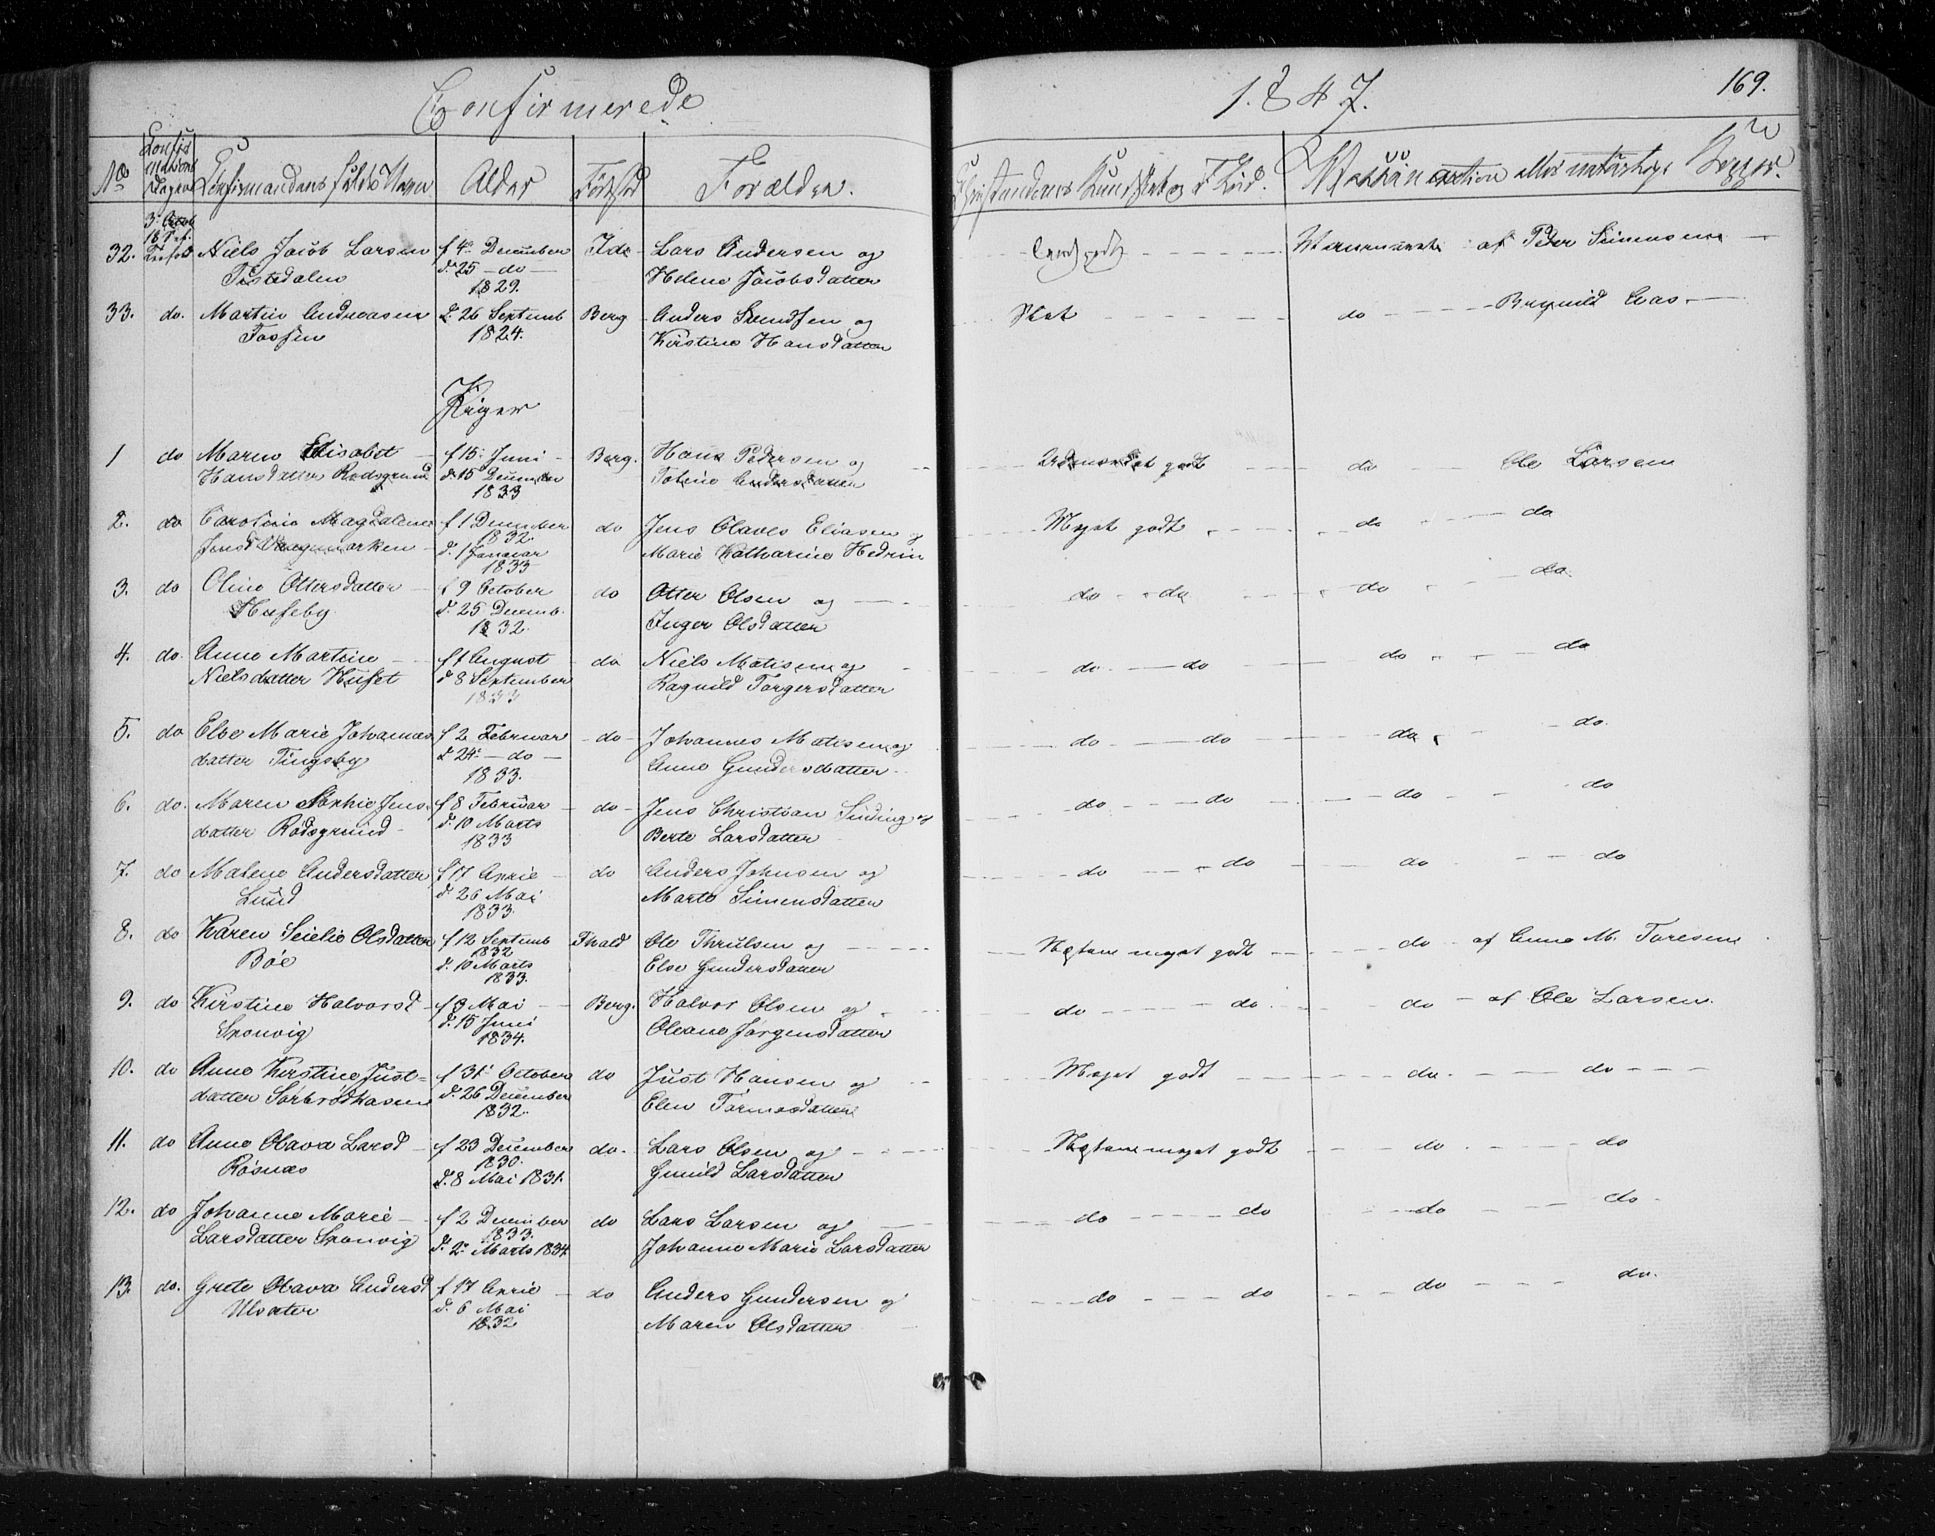 Confirmerede
1847.
169.
No
Confirmandens fulde Navn
Alder
Fødested
Forældre.
32.
Niels Jacob Larsen
Tistedalen
f 4 December
d. 25 - do -
1829.
Ide
Lars Andersen og
Helene Jacobsdatter
af Peder Simensen
33. do. Martin Andreasen
Tossen
d. 26 Septemb
1824.
Berg
Anders Svendsen og
Kirstine Hansdatter
Slet
do
Piger
1 do Maren Elisabet
Hansdatter Rødsgrund
f 15 Juni
d. 15 December
1833
Berg.
Hans Pedersen og
godt
do
Ole Larsen
2. do Carolina Magdalene
f 1 December
1832.
d. 1 Januar
1833
do
Jens Olaves Eliasen og
Marie Katharine
Meget godt
do
do
3. do Oline Ottersdatter
Huseby
f 9 October
d. 25 Decemb.
1832.
do
Otter Olsen og
Inger Olsdatter
do do
do
do
4. do. Anne Martine
Nielsdatter Huset
f 1 August
d 8 September
1833
do
Niels Matisen og
Ragnild Torgersdatter
do do
do
do
5. do Else Marie Johannes
datter Tingsby
f 2 Februar
d 24 - do -
1833.
do
Johannes Matisen og
Anne Gundersdatter
do do
do
do.
6. do. Maren Sophie Jens
datter Rødsgrund
f 8 Februar
d. 10 Marts
1833
do
Jens Christian Sinding og
Berte Larsdatter
do do
do
do
7. do Malene Andersdatter
Lund
f 17 April
d. 26 Mai
1833.
do
Anders Johnsen og
Marte Simensdatter
do do
do
do
8. do Karen Seielie Olsdatter
Bøe
f 12 Septemb
1832
d. 10 Marts
1833.
Fhald
Ole Thrulsen og
Else Gundersdatter
Næsten meget godt
do af Anne M. Toresen
9. do Kirstine Halvorsd
Sponvig
f 3 Mai
d. 15 Juni
1834.
Berg.
Halvor Olsen og
Oleane Jørgensdatter
do do
do af Ole Larsen
10. do Anne Kirstine Just-
datter
f 31 October
d. 26 December
1832.
do
Just Hansen og
Elen Tormosdatter
Meget godt
do.
do
11. do Anne Olava Larsd
Røsnæs
f 23 December
1830.
d. 8 Mai 1831.
do.
Lars Olsen og
Gunild Larsdatter
Næsten meget godt
do
do
12. do Johanne Marie
Larsdatter Sponvig
f 2 December
1833.
d. 2 Marts 1834
do
Lars Larsen og
Johanne Marie Larsdatter
do do
do
do
13. do. Grete Olava Andersd
Ulvæter
f 17 April
d. 6 Mai
1832
do
Anders Gundersen og
Maren Olsdatter
do do
do
do.